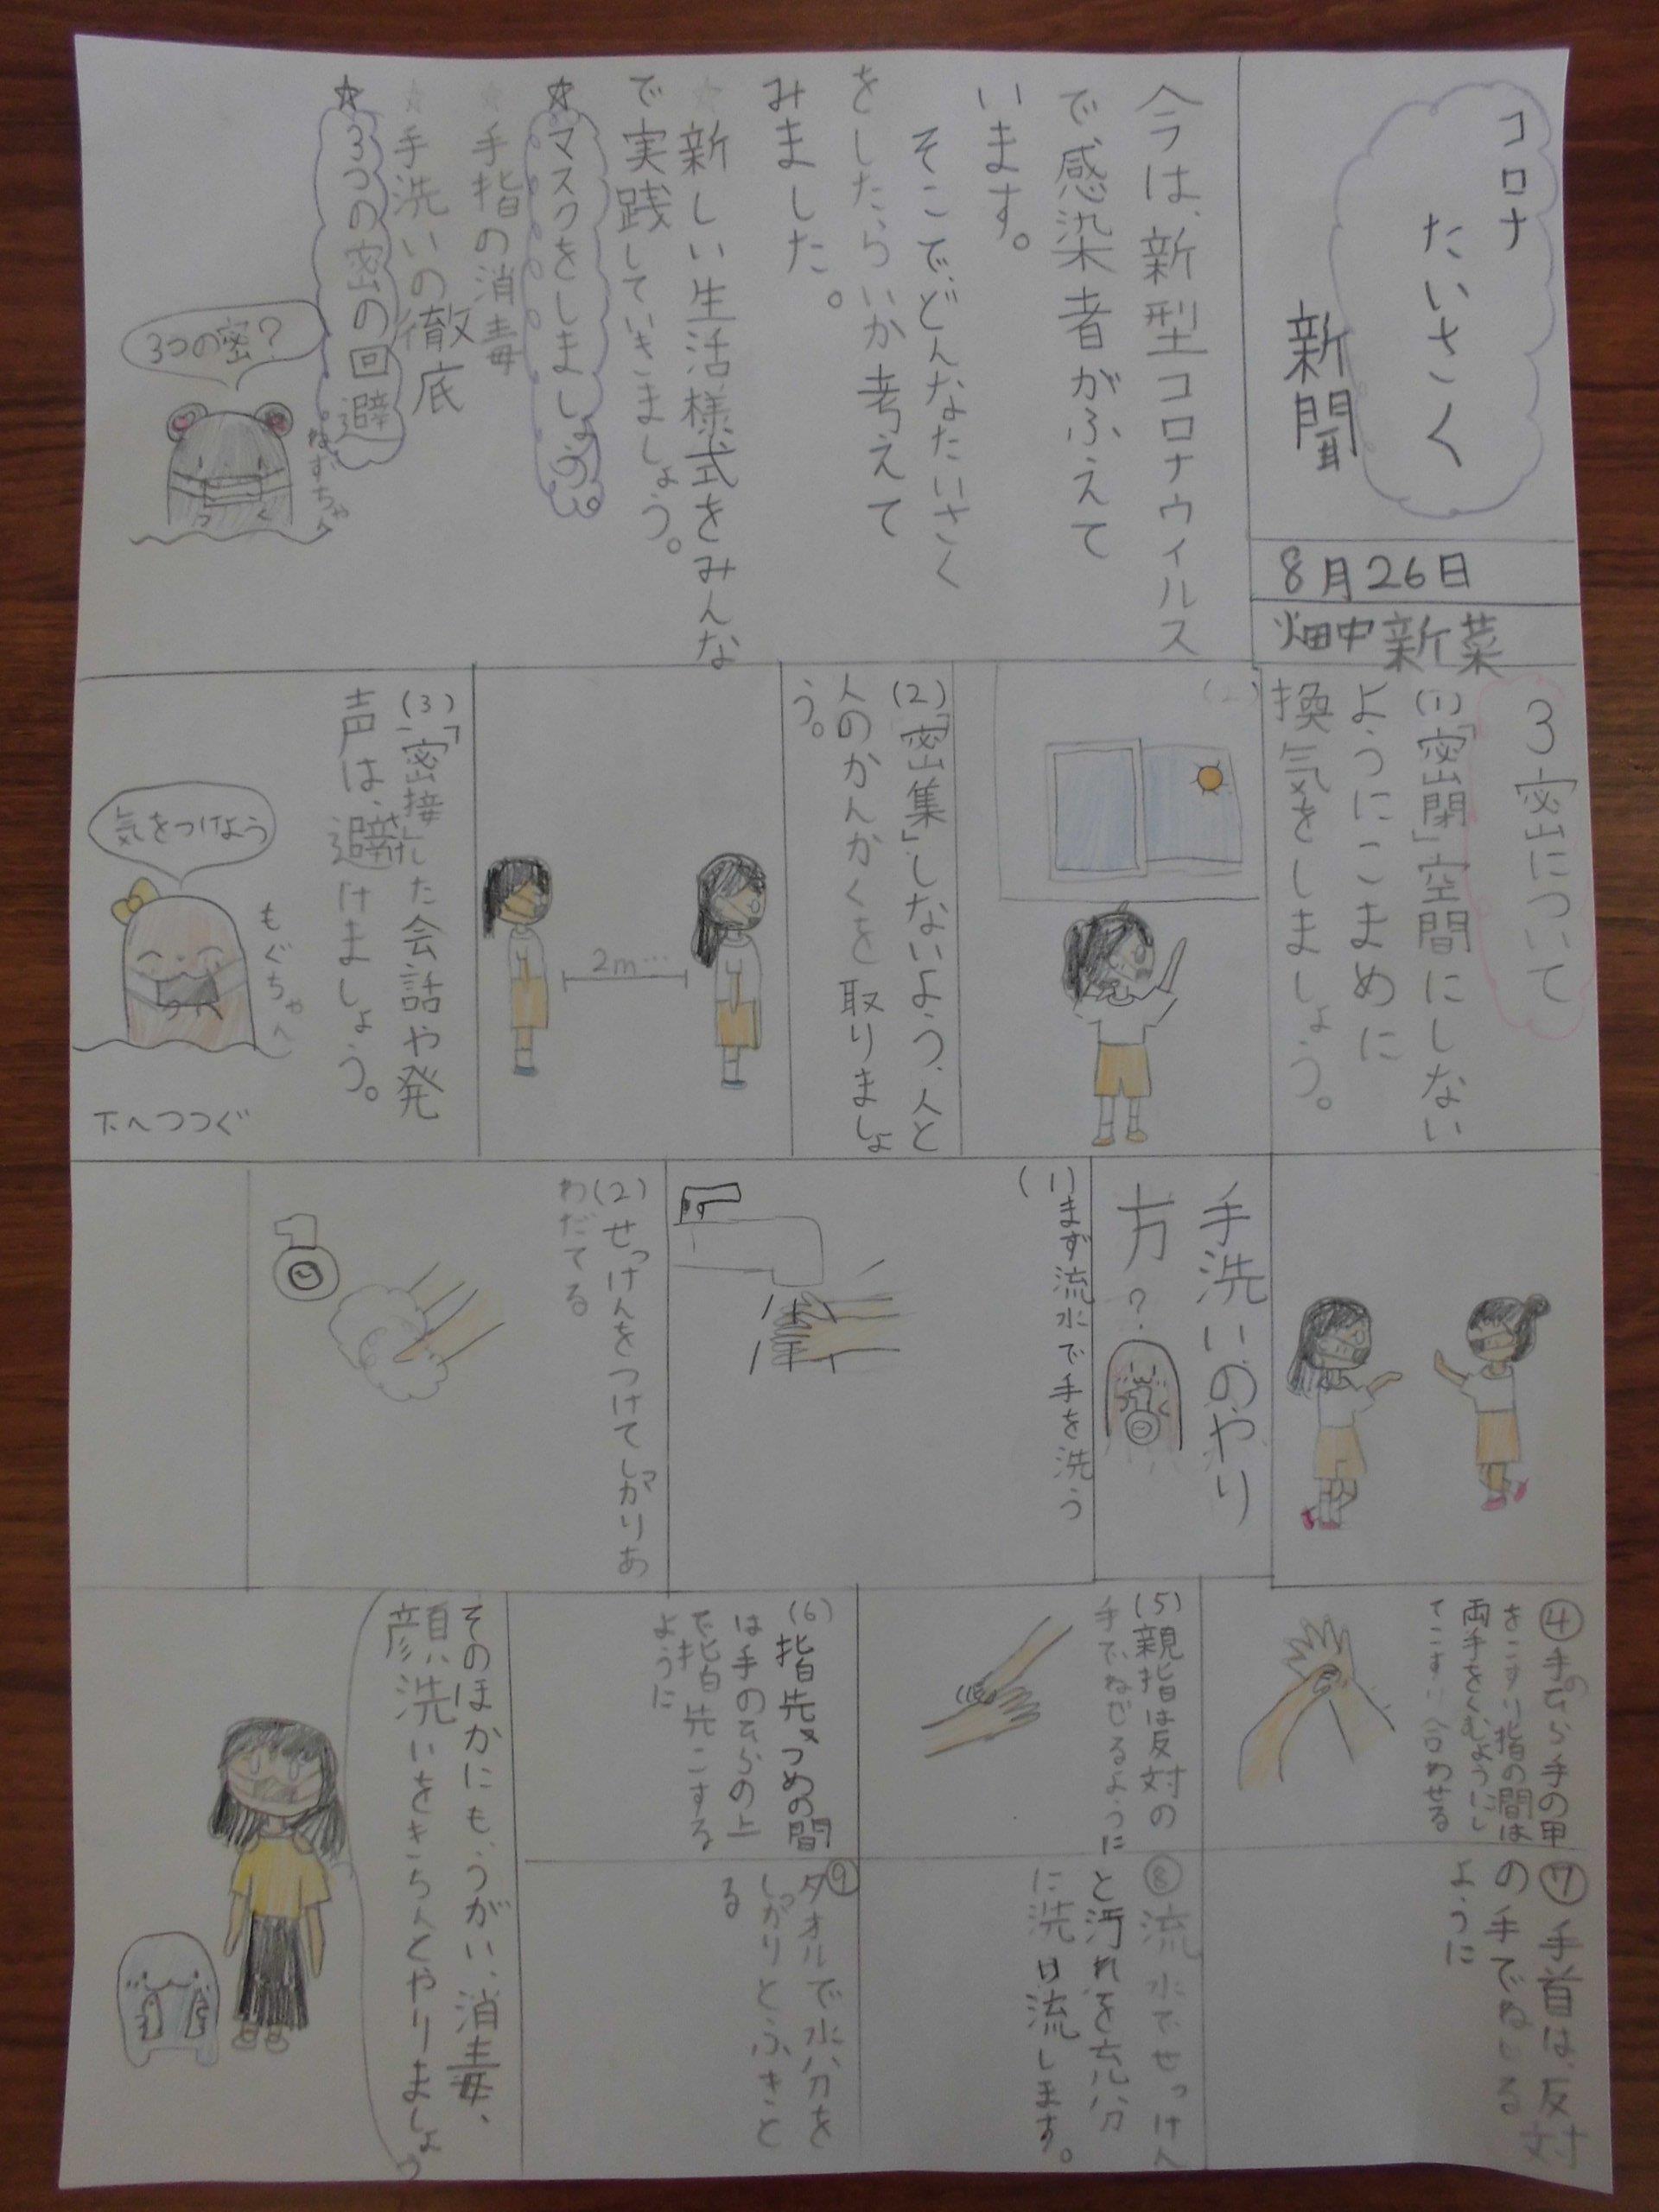 コロナ
たいさく
新聞
8月26日
畑中新菜
今は、新型コロナウィルス
で、感染者がふえて
います。
そこで、どんなたいさく
をしたらいか考えて
みました。
☆新しい生活様式をみんな
で実践していきましょう。
☆マスクをしましょう。
☆手指の消毒
☆手洗いの徹底
☆3つの密の回避
3つの密?
ねずちゃん
3密について
(1)「密閉」空間にしない
ようにこまめに
換気をしましょう。
(2)「密集」しないよう、人と
人のかんかくを取りましょ
う。
2m…
(3)「密接」した会話や発
声は、避けましょう。
気をつけよう
もぐちゃん
下へつつぐ
手洗いのやり
方?
(1)まず流水で手を洗う
(2)せっけんをつけてしっかりあ
わだてる
④手のひら手の甲
をこすり指の間は
両手をくむようにし
てこすり合わせる
(5)親指は反対の
手でねじるように
(6)指先、つめの間
は手のひらの上
で指先こする
ように
⑦手首は、反対
の手でねじる
ように
⑧流水でせっけん
と汚れを充分
に洗日流します。
⑨タオルで水分を
しっかりとふきと
る
そのほかにも、うがい、消毒、
顔洗いをきちんとやりましょう